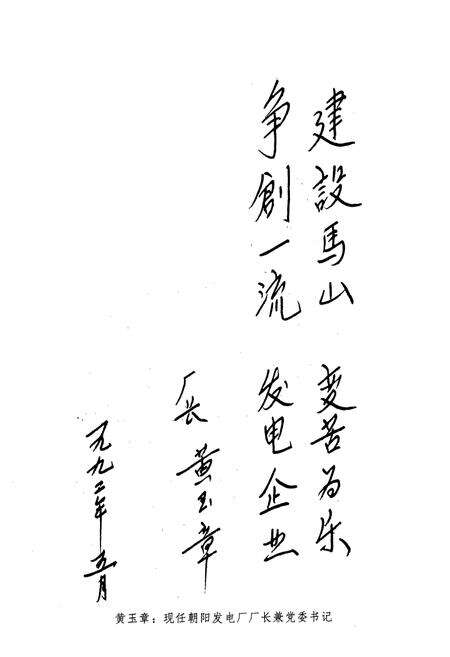 建設馬山 变苦为乐
争創一流 发电企业
厂长 黄玉章
一九九二年五月
黄玉章：现任朝阳发电厂厂长兼党委书记